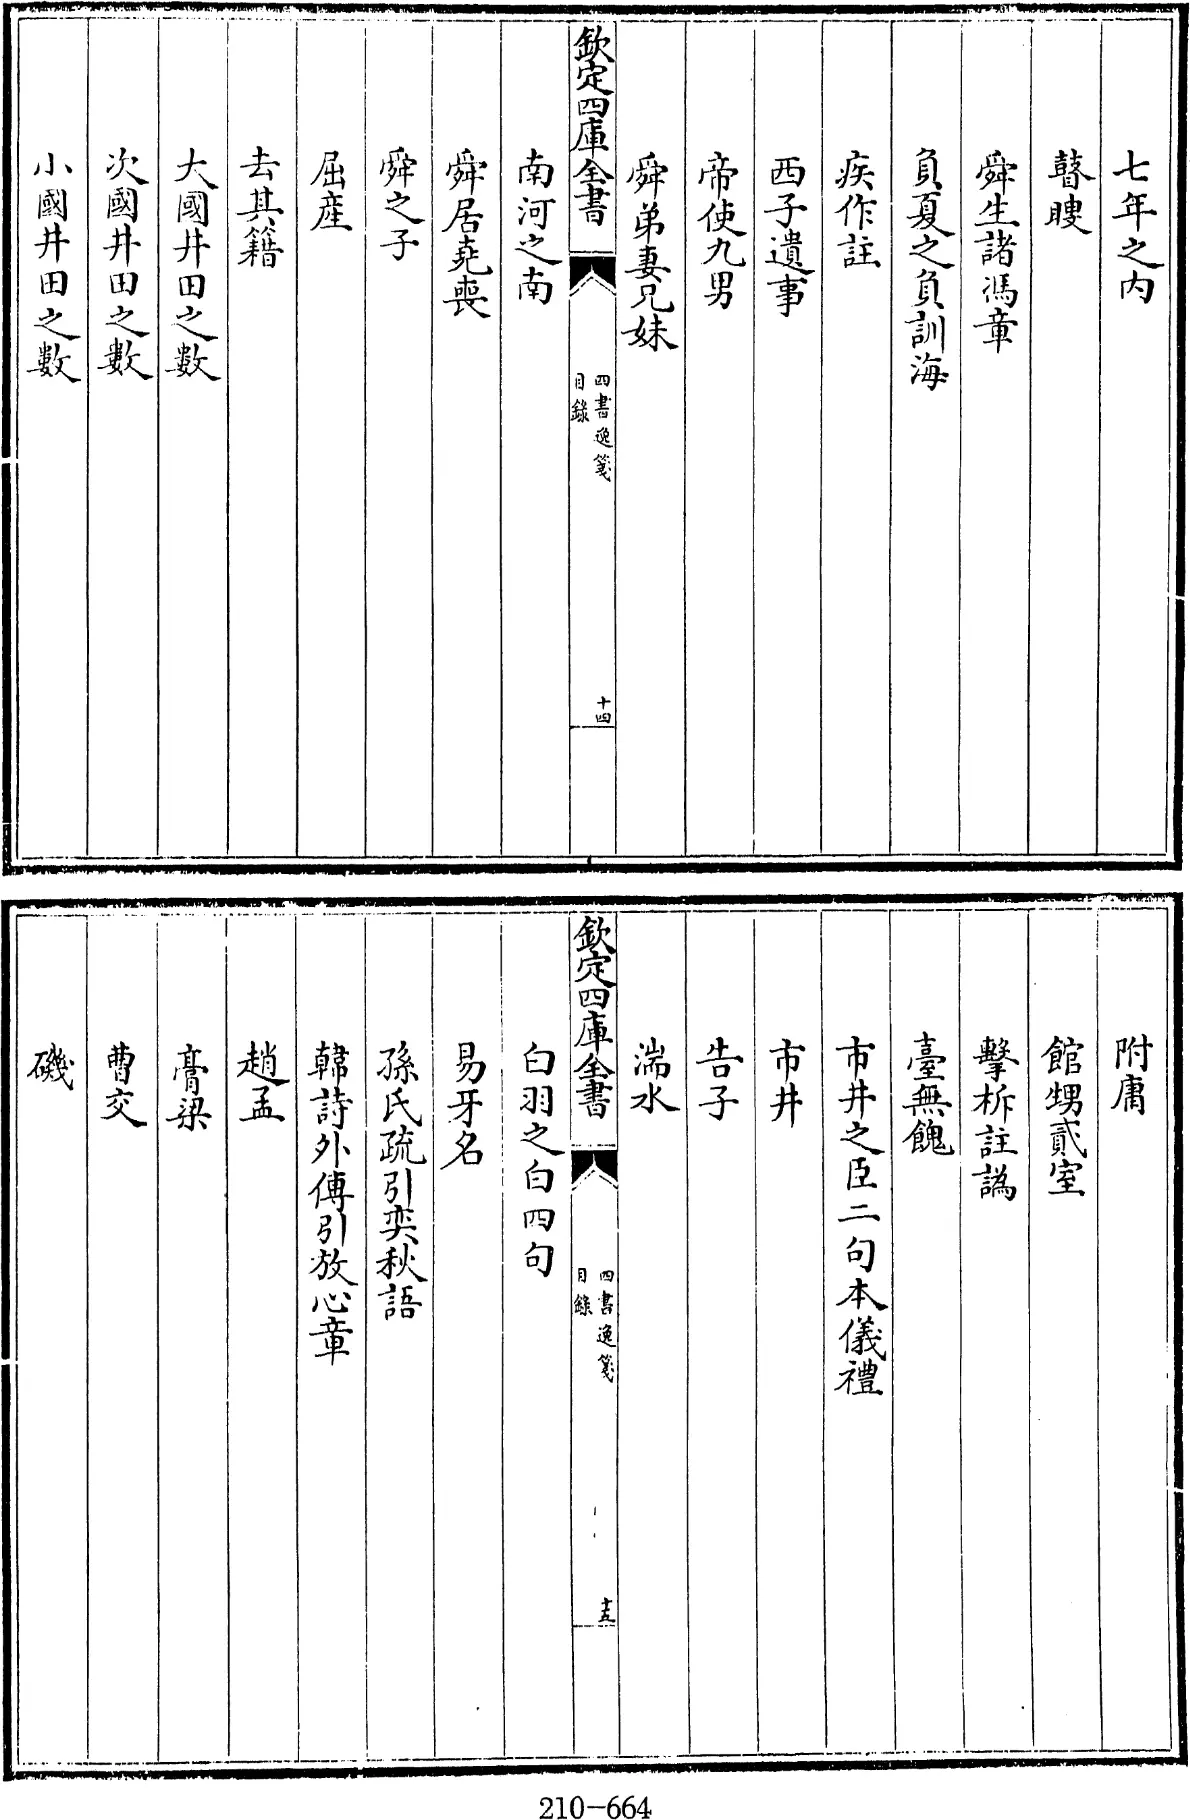 七年之内
瞽瞍
舜生諸馮章
負夏之負訓海
疾作註
西子遺事
帝使九男
舜弟妻兄妹
欽定四庫全書
四書逸箋
目錄
十四
南河之南
舜居堯喪
舜之子
屈産
去其籍
大國井田之數
次國井田之數
小國井田之數
附庸
館甥貳室
擊柝註譌
臺無餽
市井之臣二句本儀禮
市井
告子
湍水
欽定四庫全書
四書逸箋
目錄
十五
白羽之白四句
易牙名
孫氏疏引奕秋語
韓詩外傳引放心章
趙孟
膏粱
曹交
磯
210-664